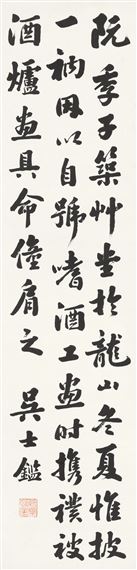 阮季子築艸堂於龍山冬夏惟披
一衲因以自號嗜酒工畫时攜襆被
酒爐畫具命僮肩之 吳士鑑